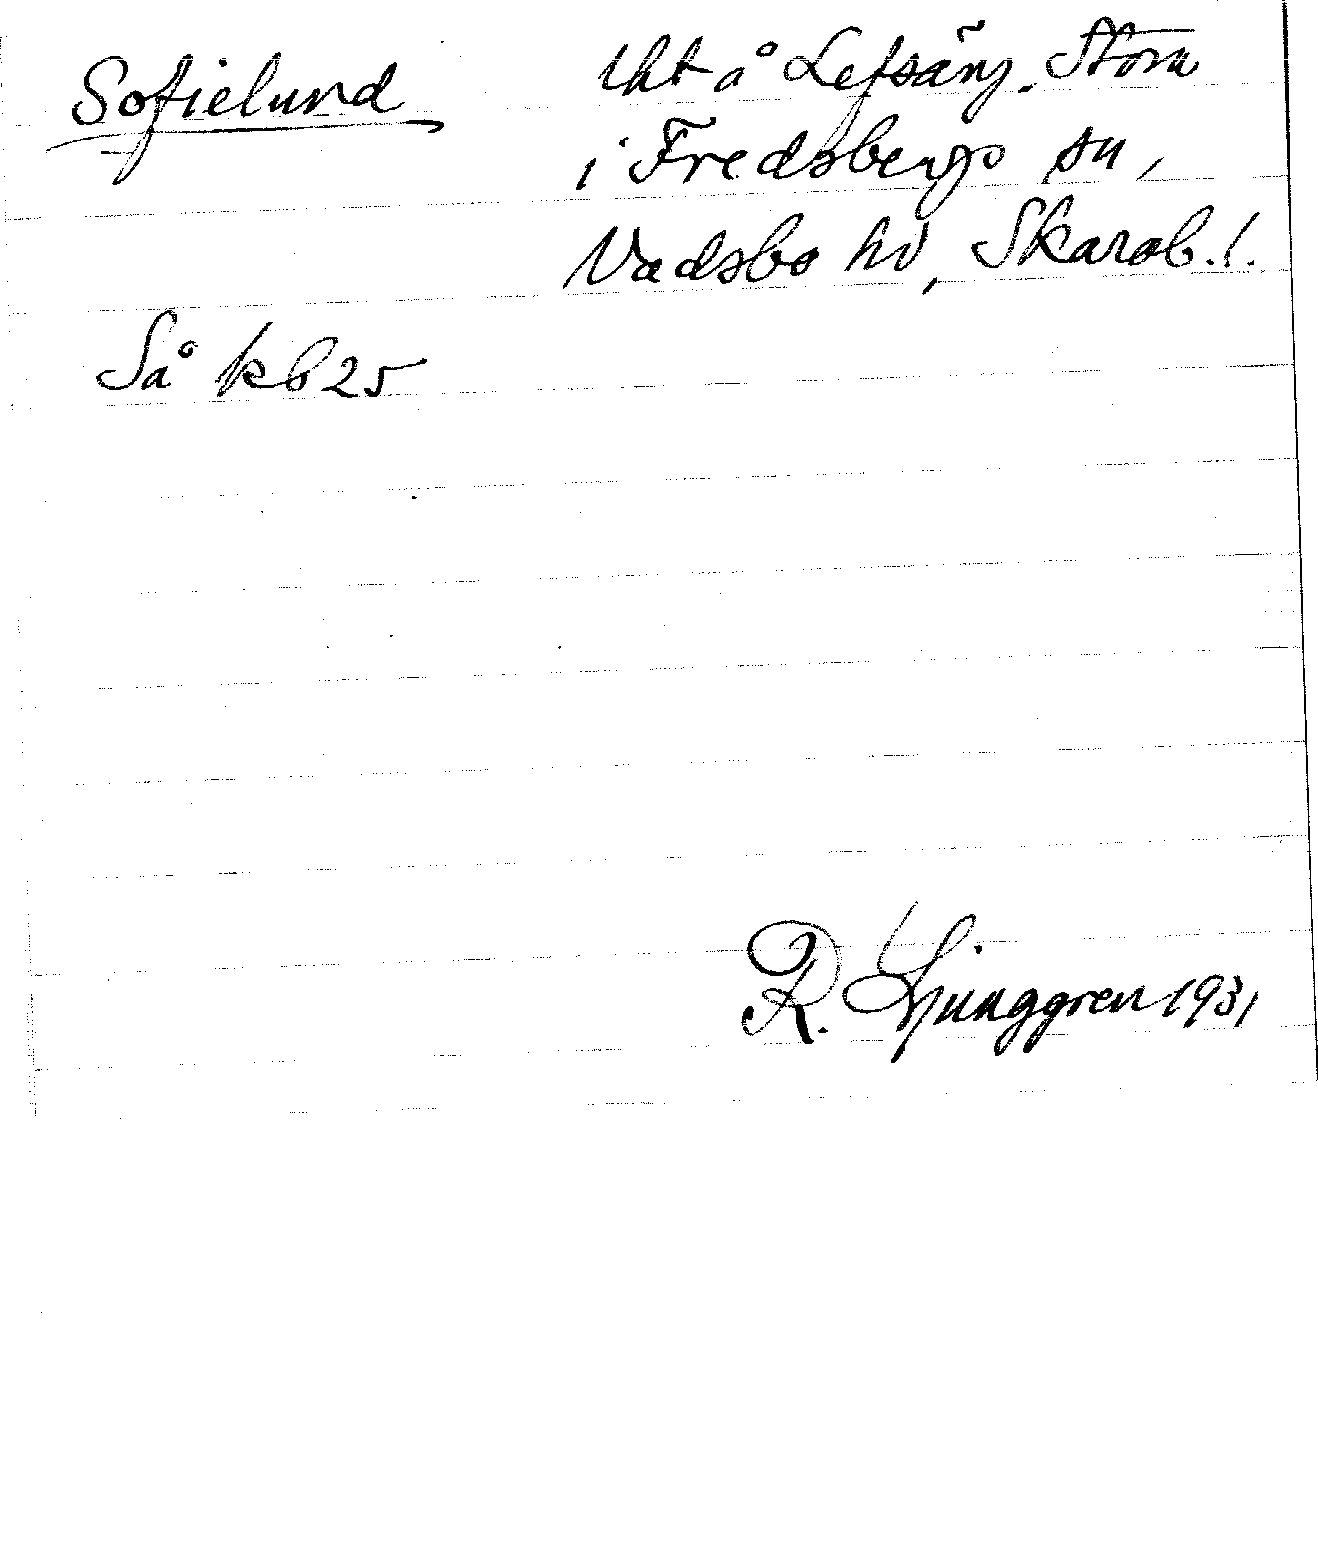 Sofielund
lht å Lefsäng. Stora
i Fredsbergs sn,
Vadsbo hd, Skarab. l.
Så kb 25
R. Ljunggren 1931